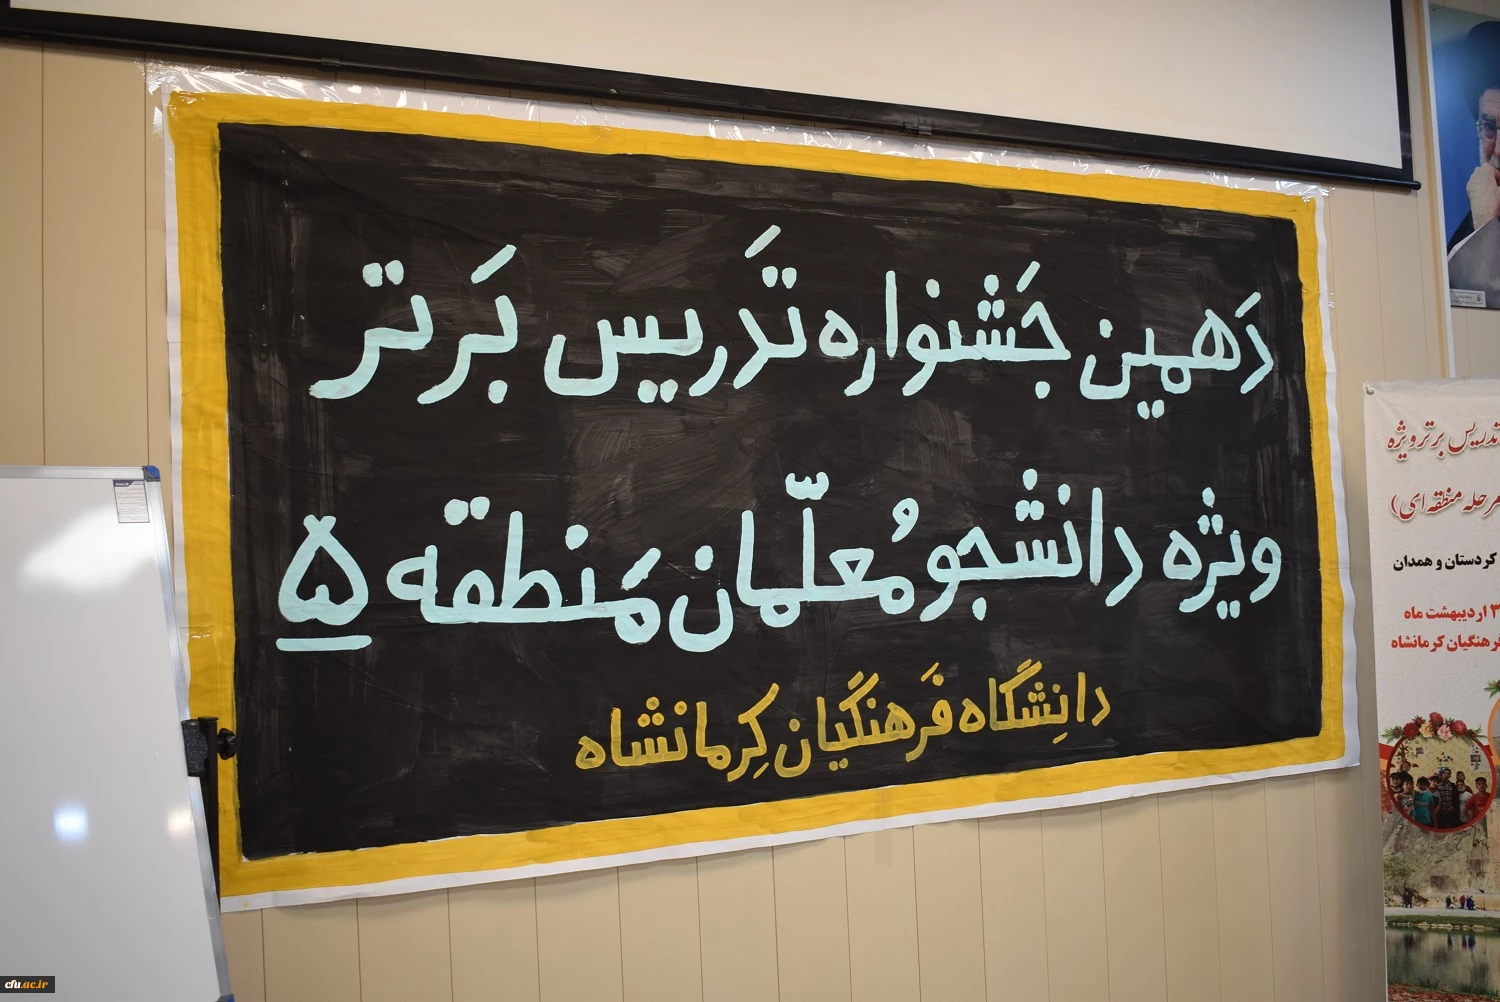 دَهمین جَشنواره تَدریس بَرتَر
ویژه دانشجومُعلّمان مَنطقه ۵
دانِشگاه فَرهنگیان کِرمانشاه
تدریس برتر ویژه
مرحله منطقه ای)
کردستان و همدان
۳ اردیبهشت ماه
فرهنگیان کرمانشاه
cfu.ac.ir